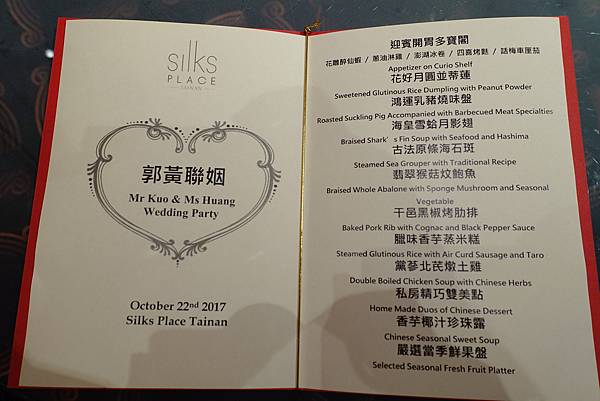 silks
PLACE
TAINAN
郭黃聯姻
Mr Kuo & Ms Huang
Wedding Party
October 22nd 2017
Silks Place Tainan
迎賓開胃多寶閣
花雕醉仙蝦 / 蔥油淋雞 / 澎湖冰卷 / 四喜烤麩 / 話梅車厘茄
Appetizer on Curio Shelf
花好月圓並蒂蓮
Sweetened Glutinous Rice Dumpling with Peanut Powder
鴻運乳豬燒味盤
Roasted Suckling Pig Accompanied with Barbecued Meat Specialties
海皇雪蛤月影翅
Braised Shark's Fin Soup with Seafood and Hashima
古法原條海石斑
Steamed Sea Grouper with Traditional Recipe
翡翠猴菇炆鮑魚
Braised Whole Abalone with Sponge Mushroom and Seasonal
Vegetable
干邑黑椒烤肋排
Baked Pork Rib with Cognac and Black Pepper Sauce
臘味香芋蒸米糕
Steamed Glutinous Rice with Air Curd Sausage and Taro
黨蔘北芪燉土雞
Double Boiled Chicken Soup with Chinese Herbs
私房精巧雙美點
Home Made Duos of Chinese Dessert
香芋椰汁珍珠露
Chinese Seasonal Sweet Soup
嚴選當季鮮果盤
Selected Seasonal Fresh Fruit Platter